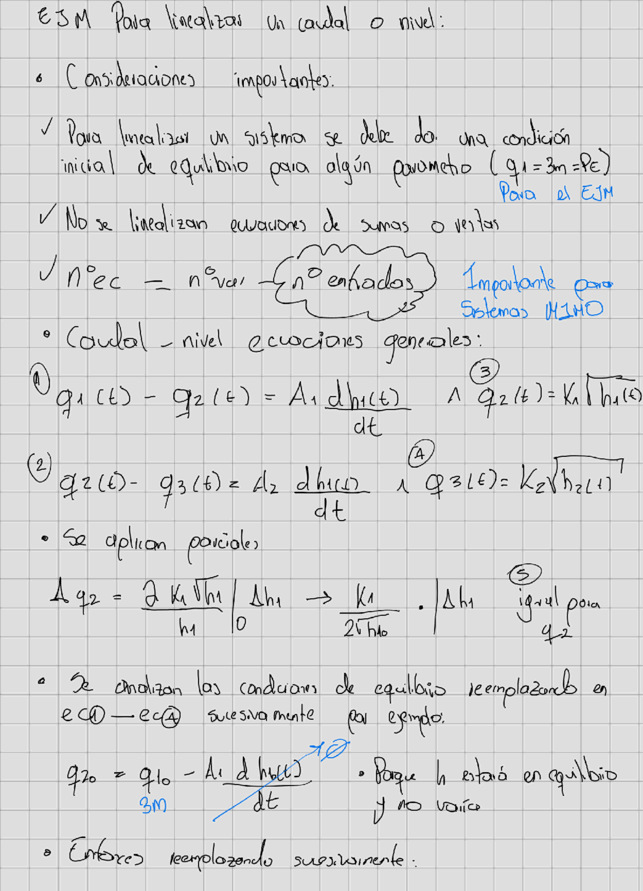 EJM Para linealizar un caudal o nivel:
• Consideraciones importantes:
✓ Para linealizar un sistema se debe da una condición
inicial de equilibrio para algún parametro (q1 = 3m = PE)
Para el EJM
✓ No se linealizan ecuaciones de sumas o restas
✓ n°ec = n°var - n° entradas
Importante para
Sistemas MIMO
• Caudal - nivel ecuaciones generales:
① q1(t) - q2(t) = A1 dh1(t)/dt ∧ ③ q2(t) = K1√h1(t)
② q2(t) - q3(t) = A2 dh1(t)/dt ∧ ④ q3(t) = K2√h2(t)
• Se aplican parciales
Δq2 = ∂ K1√h1 / h1 |0 Δh1 → K1 / 2√h10 · | Δh1 ⑤ igual para
q2
• Se analizan las condiciones de equilibrio reemplazando en
ec① — ec④ sucesivamente por ejemplo:
q20 = q10 - A1 dh1(t)/dt ∅ • Porque h estará en equilibrio
3m
y no varía
• Entonces reemplazando sucesivamente: